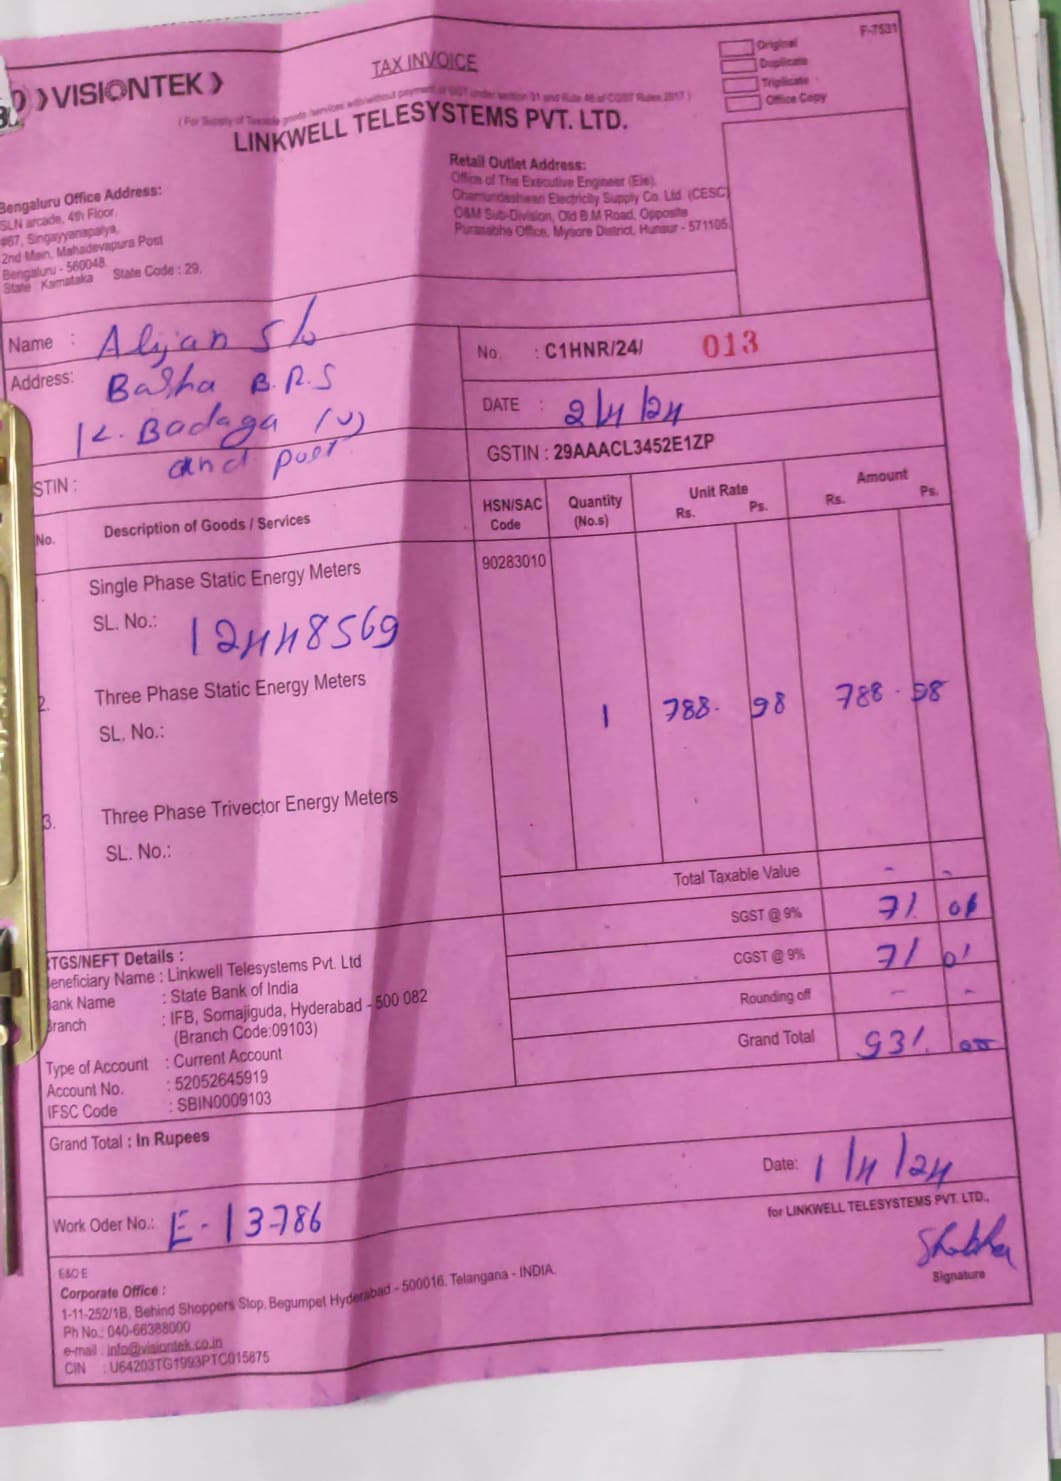 VISIONTEK
TAX INVOICE
F-7531
Original
Duplicate
Triplicate
Office Copy
( For Supply of Taxable goods /services with/without payment of GST under section 31 and Rule 46 of CGST Rules 2017 )
LINKWELL TELESYSTEMS PVT. LTD.
Bengaluru Office Address:
SLN arcade, 4th Floor,
#67, Singayyanapalya,
2nd Main, Mahadevapura Post
Bengaluru - 560048.
State : Karnataka State Code : 29.
Retail Outlet Address:
Office of The Executive Engineer (Ele),
Chamundeshwari Electricity Supply Co. Ltd. (CESC)
O&M Sub-Division, Old B.M Road, Opposite
Purasabha Office, Mysore District, Hunsur - 571105.
Name : Alijan S/o
Address: Basha B.R.S
K. Badaga (V)
and post
STIN :
No. : C1HNR/24/ 013
DATE : 2/4/24
GSTIN : 29AAACL3452E1ZP
No. Description of Goods / Services HSN/SAC Code Quantity (No.s) Unit Rate Rs. Ps. Amount Rs. Ps.
Single Phase Static Energy Meters 90283010
SL. No.: 12448569
2. Three Phase Static Energy Meters
SL. No.:
1 788. 98 788. 98
3. Three Phase Trivector Energy Meters
SL. No.:
Total Taxable Value - -
SGST @ 9% 71 01
CGST @ 9% 71 01
Rounding off - -
Grand Total 931. 00
TGS/NEFT Details :
eneficiary Name : Linkwell Telesystems Pvt. Ltd
ank Name : State Bank of India
ranch : IFB, Somajiguda, Hyderabad - 500 082
(Branch Code:09103)
Type of Account : Current Account
Account No. : 52052645919
IFSC Code : SBIN0009103
Grand Total : In Rupees
Date: 1/4/24
Work Oder No.: E-13786
for LINKWELL TELESYSTEMS PVT. LTD.,
Signature
E&O E
Corporate Office :
1-11-252/1B, Behind Shoppers Stop, Begumpet Hyderabad - 500016. Telangana - INDIA.
Ph No.: 040-66388000
e-mail : info@visiontek.co.in
CIN : U64203TG1993PTC015875